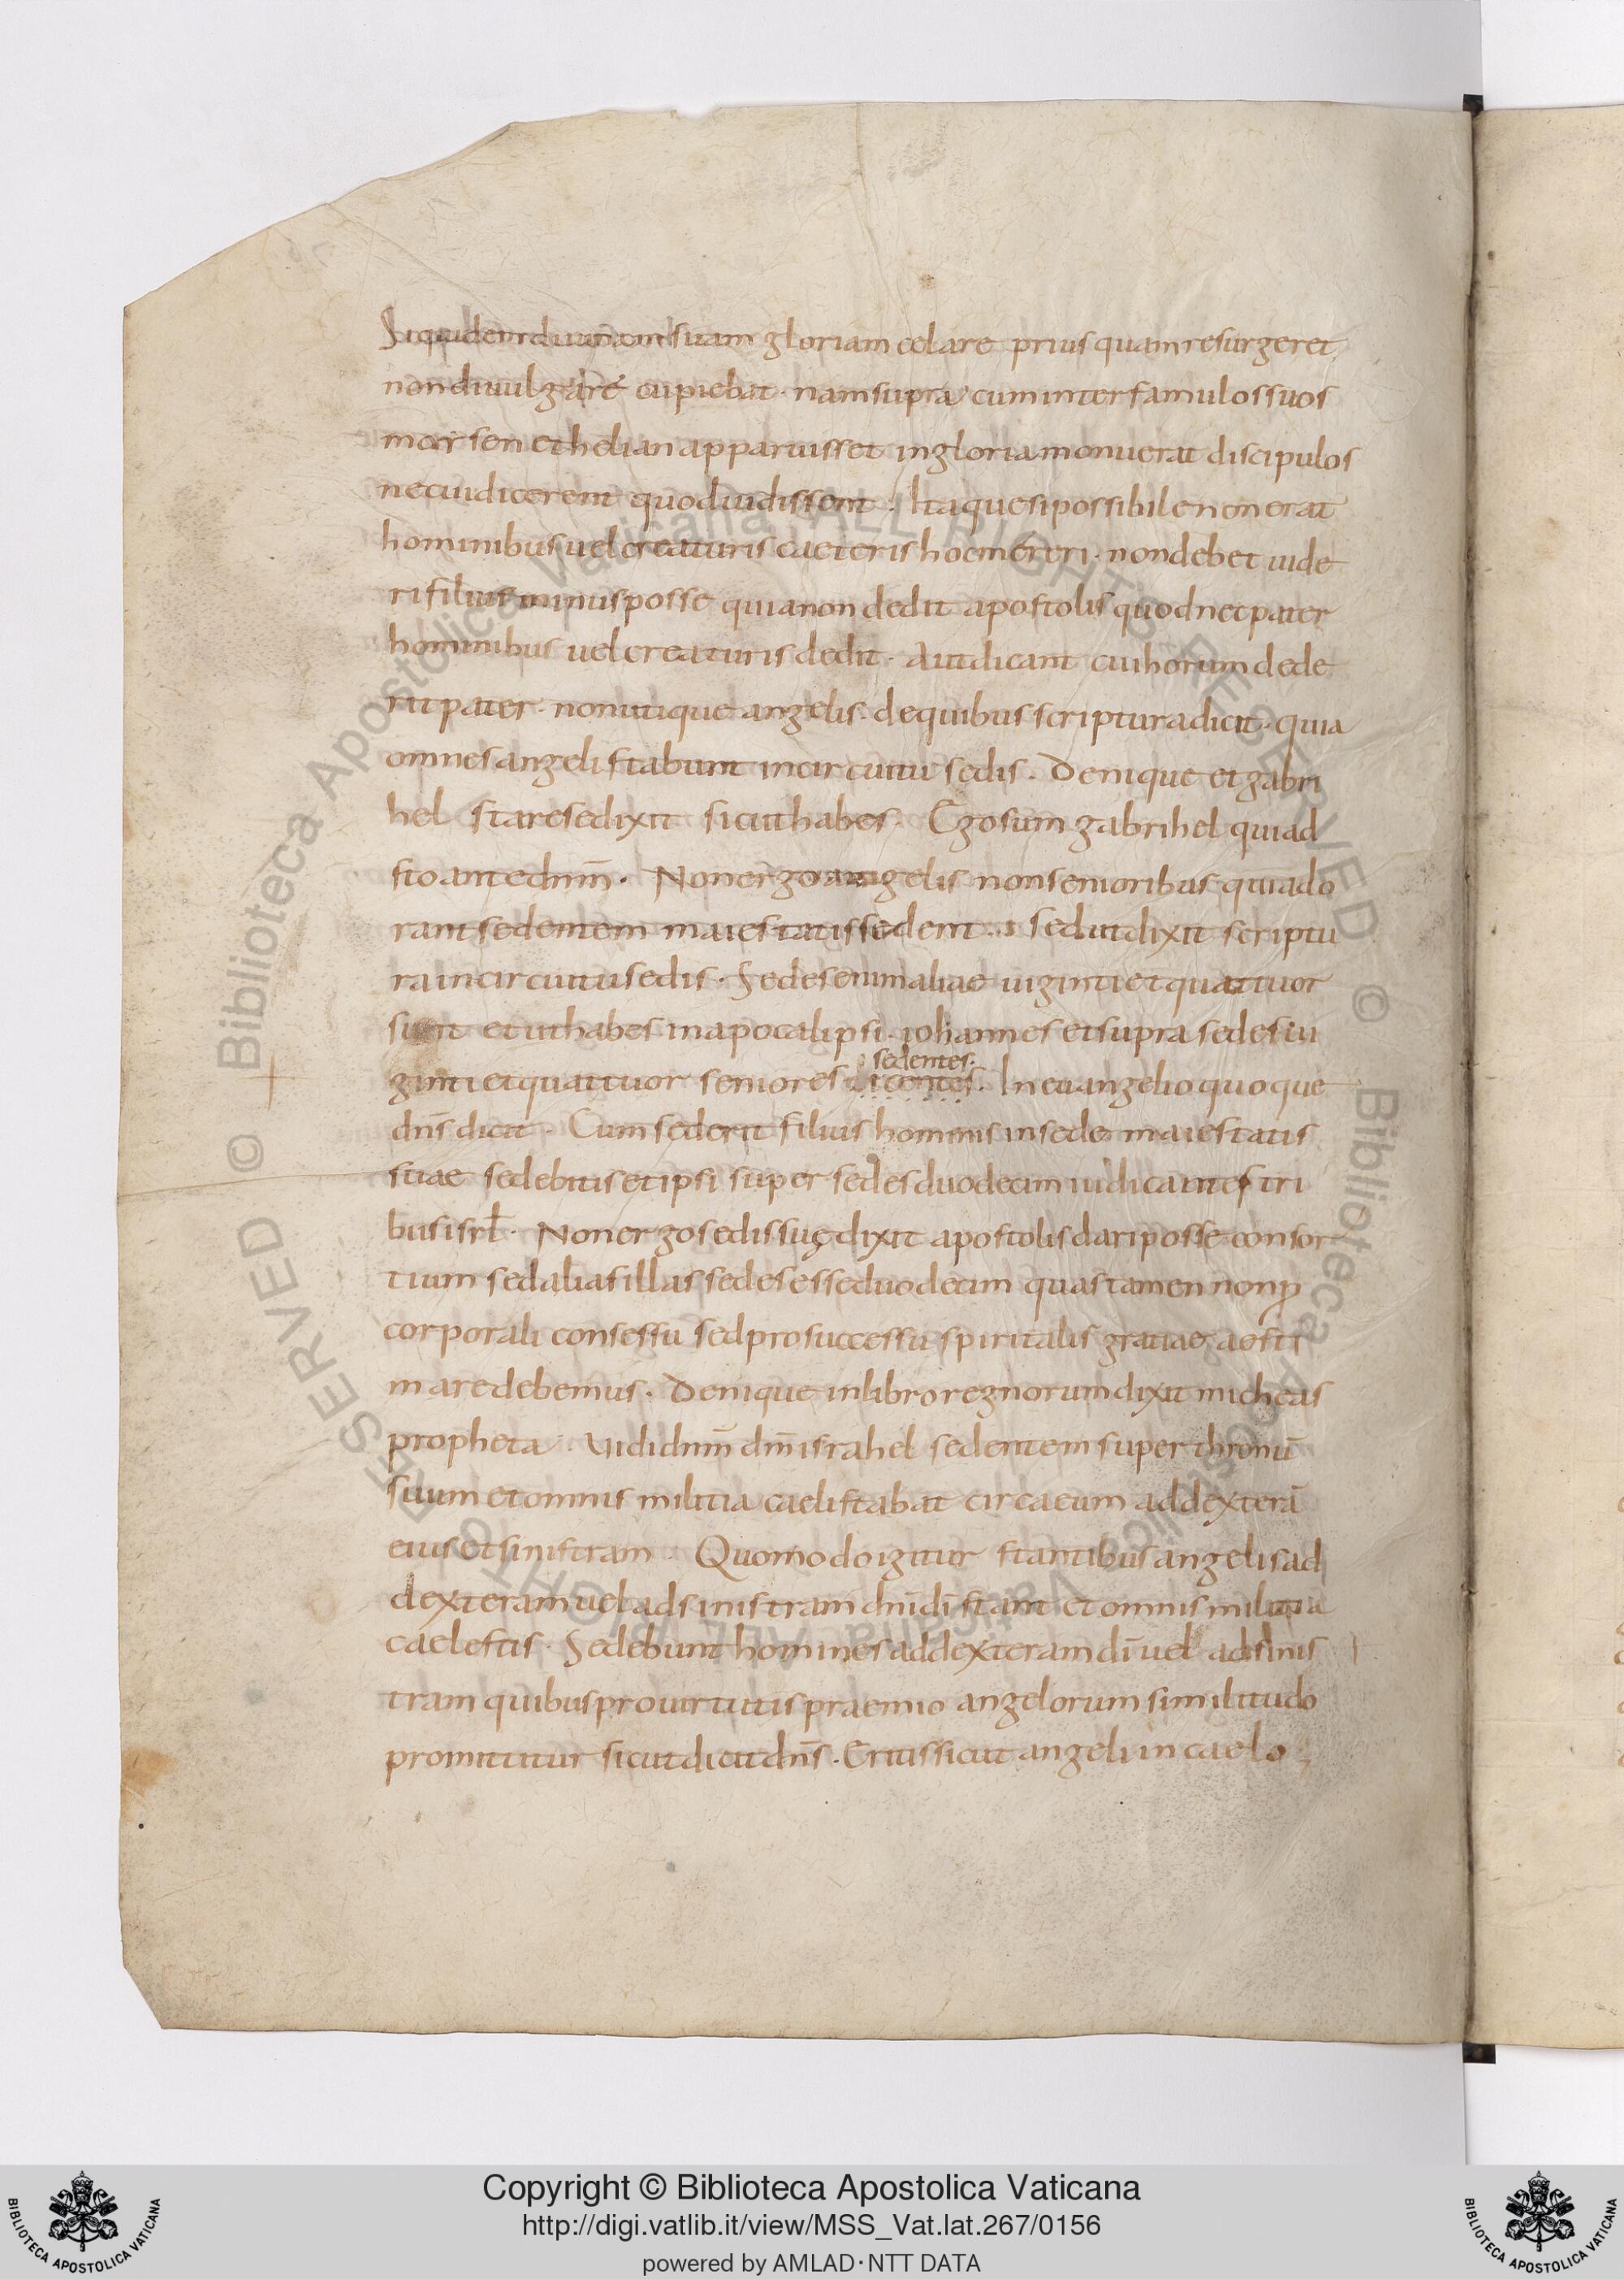 Siquidem diuinam suam gloriam celare priusquam resurgeret
non diuulgare cupiebat · nam supra cum inter famulos suos
moysen et helian apparuisset in gloria monuerat discipulos
ne cui dicerent quod uidissent · Itaque si possibile non erat
hominibus uel creaturis caeteris hoc mereri · non debet uide
ri filius minus posse quia non dedit apostolis quod nec pater
hominibus uel creaturis dedit · Aut dicant cui horum dede
rit pater · non utique angelis · de quibus scriptura dicit · quia
omnes angeli stabant in circuitu sedis · Denique et gabri
hel stare se dixit sicut habes · Ego sum gabrihel qui ad
sto ante dnm̄ · Non ergo angelis non senioribus qui ado
rant sedentem maiestatis sedent · sed ut dixit scriptu
ra in circuitu sedis · Sedes enim aliae uiginti et quattuor
sunt et ut habes in apocalipsi · iohannes et supra sedes ui
sedentes ·
ginti et quattuor seniores dicentes · In euangelio quoque
dn̄s dicit · Cum sederit filius hominis in sede maiestatis
suae sedebitis et ipsi super sedes duodecim iudicantes tri
bus isrl̄ · Non ergo sedis suę dixit apostolis dari posse consor
tium sed alias illas sedes esse duodecim quas tamen non ꝓ
corporali consessu sed pro successu spiritalis gratiae aesti
mare debemus · Denique in libro regnorum dixit micheas
propheta · Uidi dnm̄ dm̄ israhel sedentem super thronū
suum et omnis militia caeli stabat circa eum ad dexterā
eius et sinistram · Quomodo igitur stantibus angelis ad
dexteram uel ad sinistram dn̄i dī stant et omnis militia
caelestis · Sedebunt homines ad dexteram dī uel ad sinis
tram quibus pro uirtutis praemio angelorum similitudo
promittitur sicut dicit dn̄s · Eritis sicut angeli in caelo ;
Copyright © Biblioteca Apostolica Vaticana
http://digi.vatlib.it/view/MSS_Vat.lat.267/0156
powered by AMLAD · NTT DATA
BIBLIOTECA APOSTOLICA VATICANA
BIBLIOTECA APOSTOLICA VATICANA